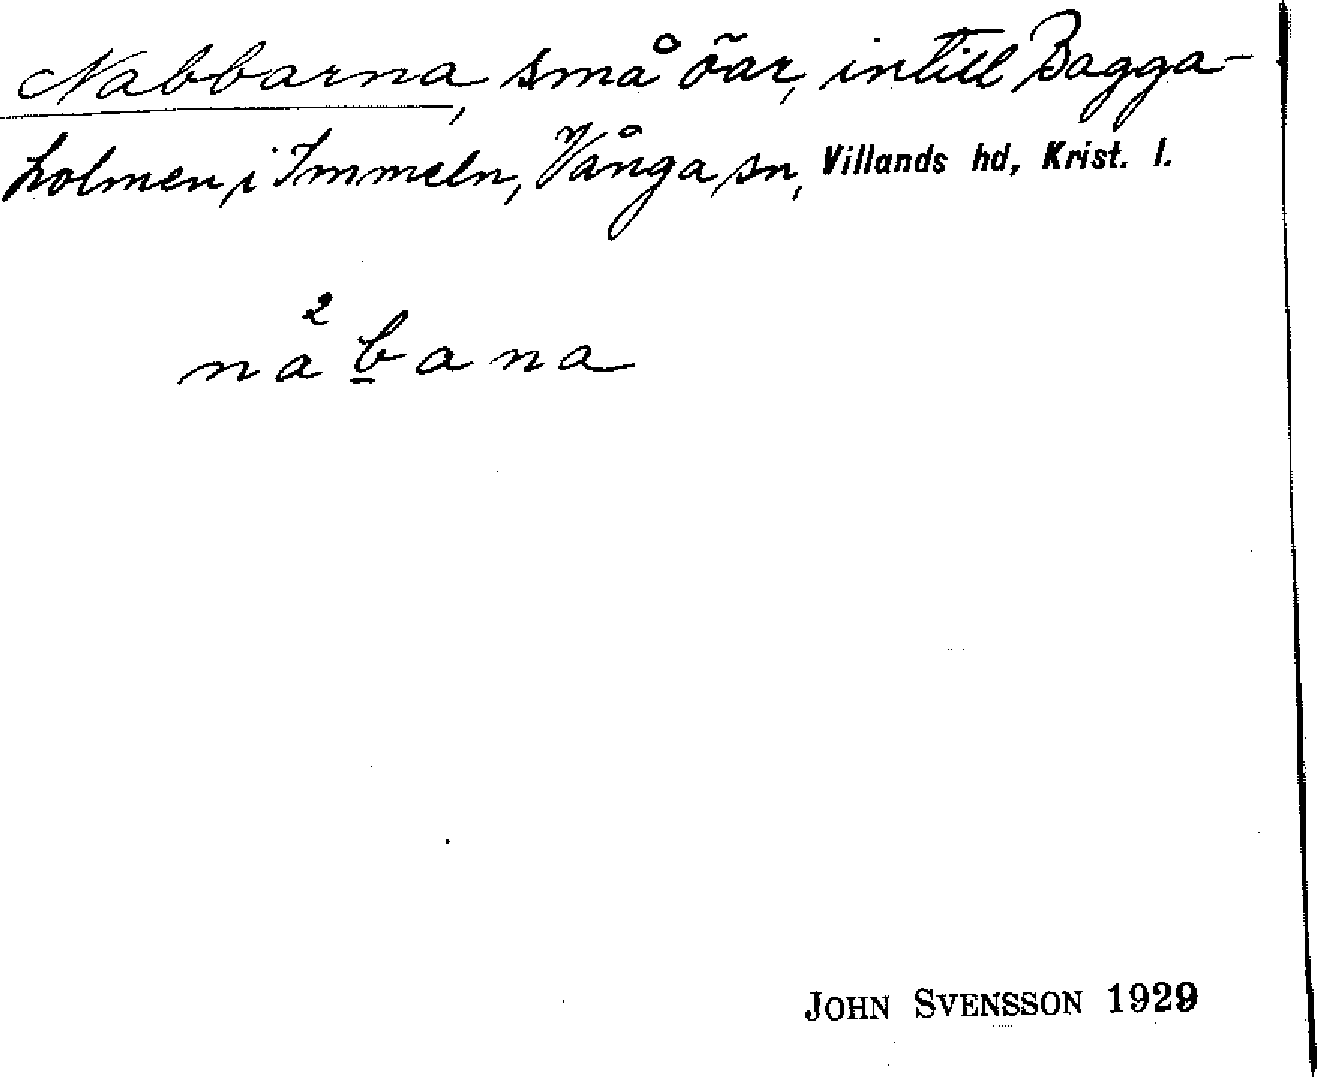 Nabbarna, små öar, intill Bagga-
holmen i Immeln, Vånga sn, Villands hd, Krist. l.
2
nab̲ana
JOHN SVENSSON 1929